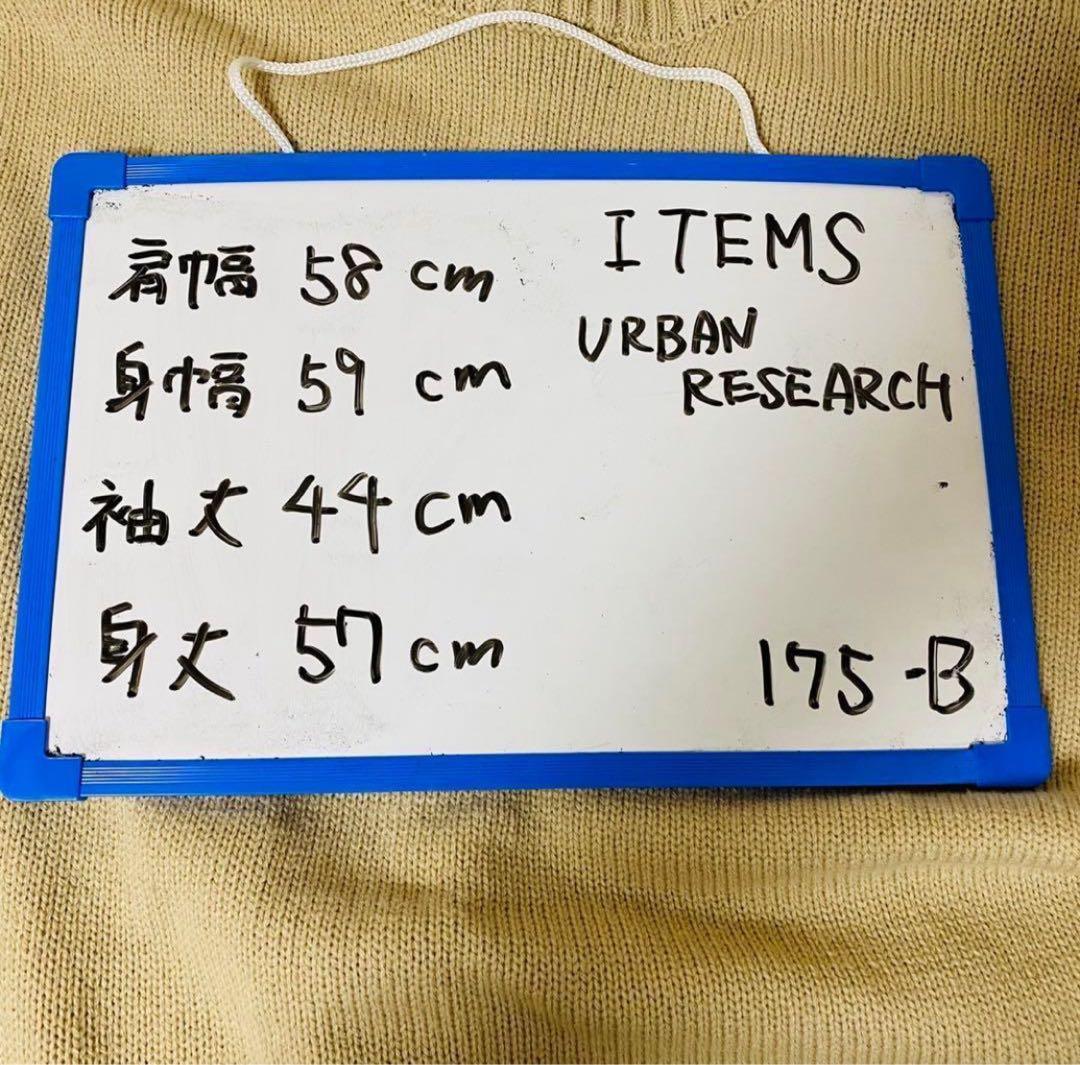 肩幅 58 cm
身幅 59 cm
袖丈 44 cm
身丈 57 cm
ITEMS
URBAN
RESEARCH
175-B